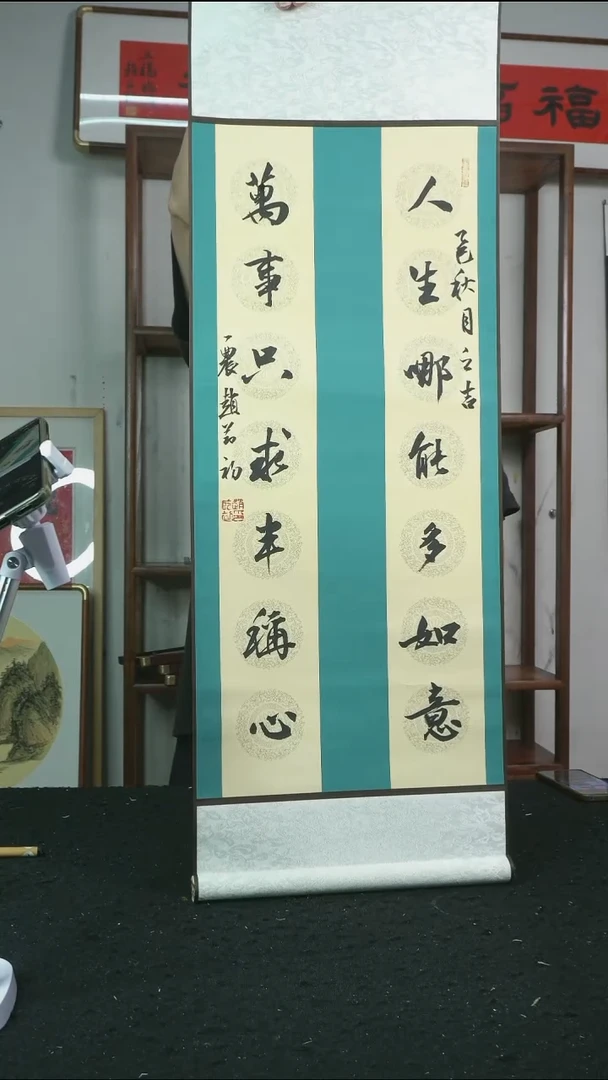 人生哪能多如意
秋月之吉
萬事只求半稱心
一農趙
福